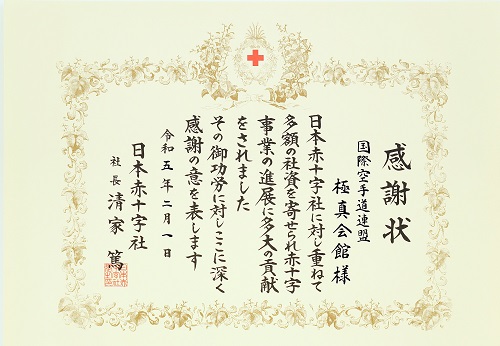 感謝状
国際空手道連盟
極真会館様
日本赤十字社に対し重ねて
多額の社資を寄せられ赤十字
事業の進展に多大の貢献
をされました
その御功労に対しここに深く
感謝の意を表します
令和五年二月一日
日本赤十字社
社長 清家 篤